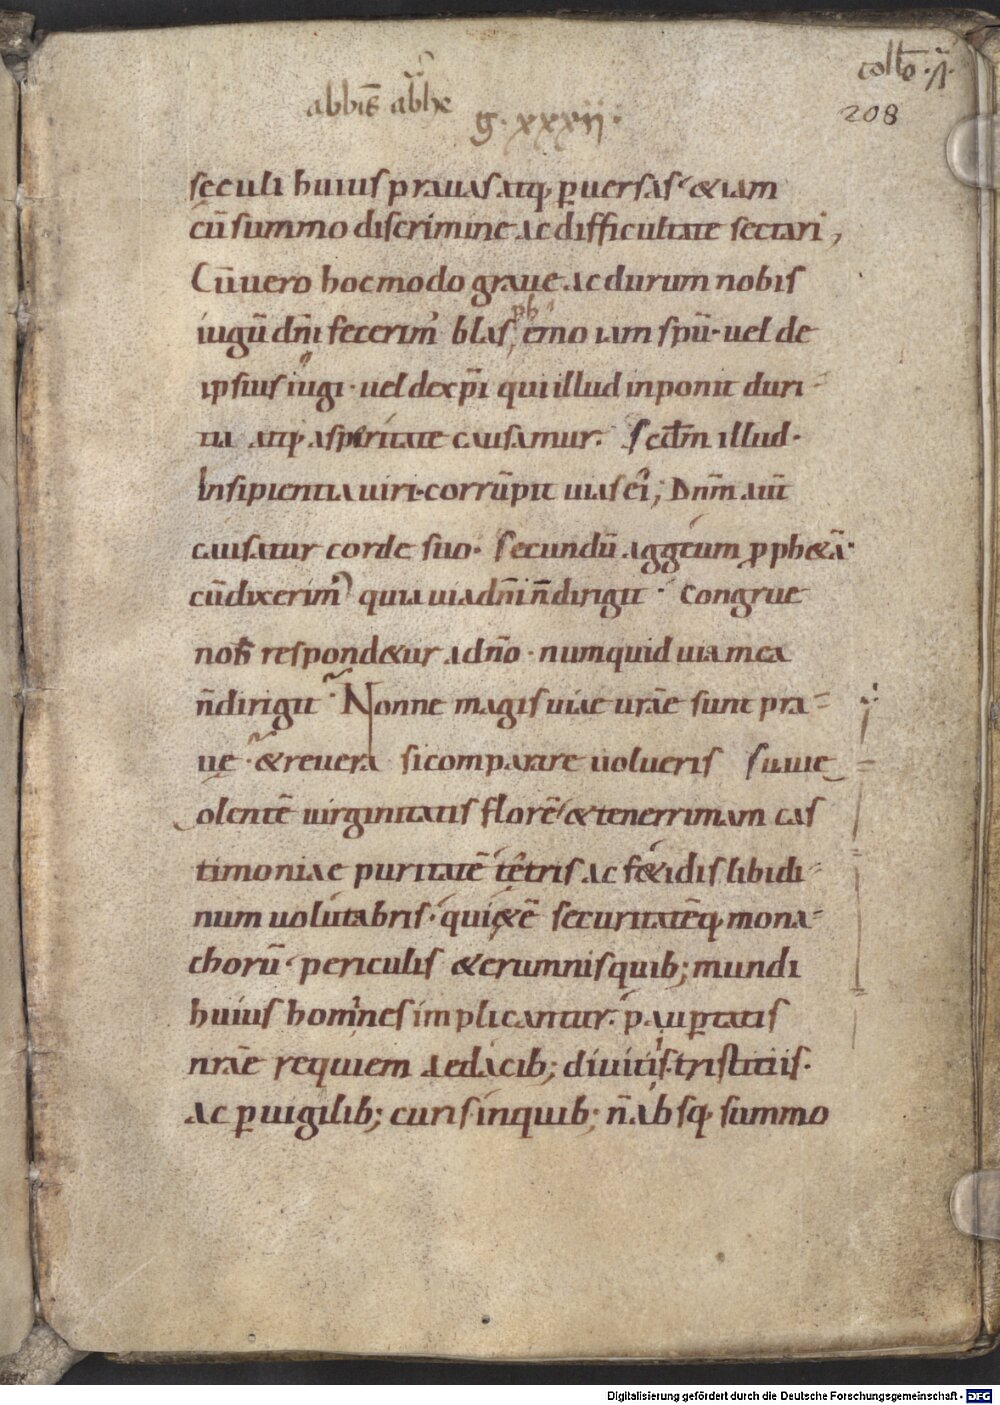 collō · ıı ·
208
abbīs abhe
g · xxxii ·
seculi huius prauas atq; puersas · & iam
cū summo discrimine ac difficultate sectari ;
Cū uero hoc modo graue ac durum nobis
iugū dn̄i fecerim' blasphemo iam spū · uel de
ipsius iugi · uel de xp̄i qui illud inponit duri-
tia atq; asperitate causamur. Scdm̄ illud ·
Insipientia uiri corrūpit uias ei'; Dnm̄ aut̄
causatur corde suo · secundū aggeum pph&ā ·
cū dixerim' quia uia dn̄i n̄ dirigit · Congrue
nob̄ respond&ur a dn̄o · numquid uia mea
n̄ dirigit · Nonne magis uiae ur̄ae sunt pra-
uę · & reuera si comparare uolueris suaue
olentē uirginitatis florē & tenerrimam cas
timoniae puritatē tetris ac f&idis libidi-
num uolutabris · qui&ē securitatēq; mona-
chorū · periculis & erumnis quib; mundi
huius homines implicantur · paupertatis
nr̄ae requiem aedacib; diuitiis tristitiis ·
ac puigilib; curis in quib; n̄ absq; summo
Digitalisierung gefördert durch die Deutsche Forschungsgemeinschaft - DFG